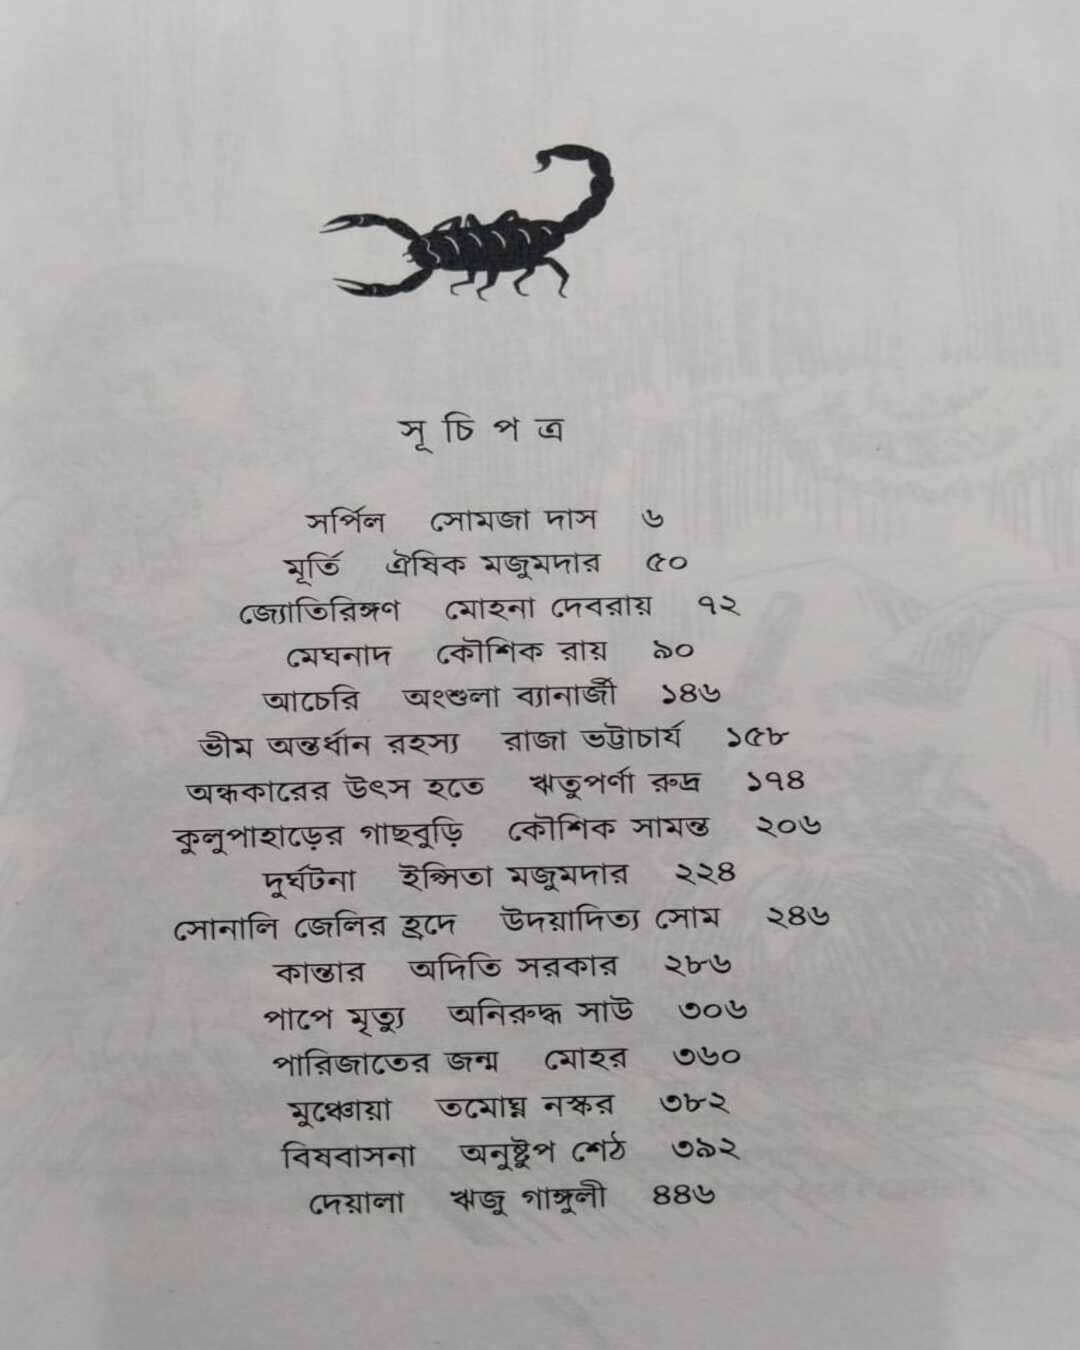 সূচিপত্র
সর্পিল সোমজা দাস ৬
মূর্তি ঐষিক মজুমদার ৫০
জ্যোতিরিঙ্গণ মোহনা দেবরায় ৭২
মেঘনাদ কৌশিক রায় ৯০
আচেরি অংশুলা ব্যানার্জী ১৪৬
ভীম অন্তর্ধান রহস্য রাজা ভট্টাচার্য ১৫৮
অন্ধকারের উৎস হতে ঋতুপর্ণা রুদ্র ১৭৪
কুলুপাহাড়ের গাছবুড়ি কৌশিক সামন্ত ২০৬
দুর্ঘটনা ইপ্সিতা মজুমদার ২২৪
সোনালি জেলির হ্রদে উদয়াদিত্য সোম ২৪৬
কান্তার অদিতি সরকার ২৮৬
পাপে মৃত্যু অনিরুদ্ধ সাউ ৩০৬
পারিজাতের জন্ম মোহর ৩৬০
মুঞ্চোয়া তমোঘ্ন নস্কর ৩৮২
বিষবাসনা অনুষ্টুপ শেঠ ৩৯২
দেয়ালা ঋজু গাঙ্গুলী ৪৪৬